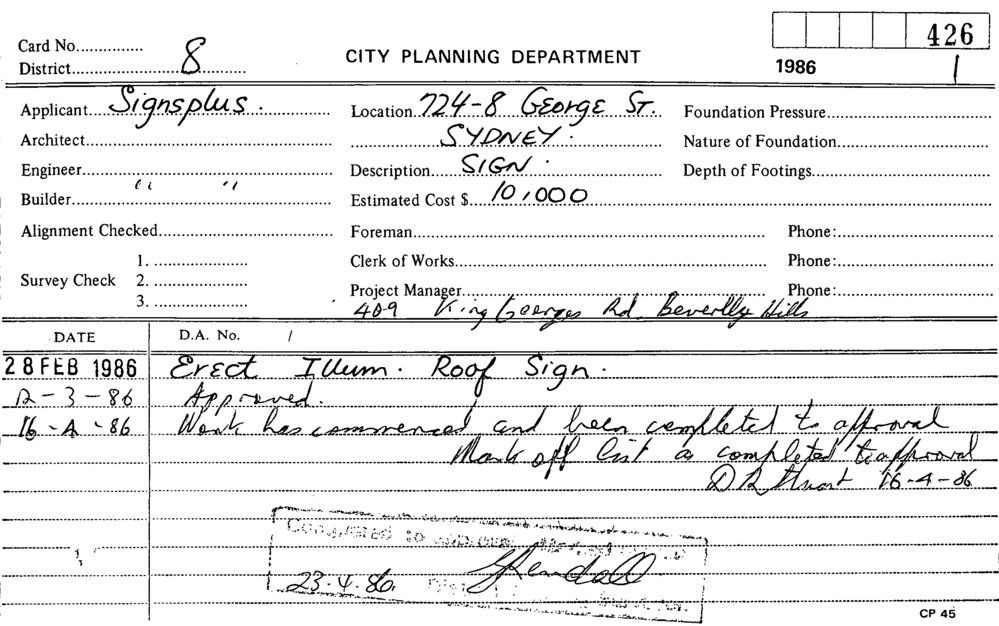 Card No............... 426
District........8........... CITY PLANNING DEPARTMENT 1986 1
Applicant....Signsplus. Location..724-8 George St. Foundation Pressure
Architect SYDNEY. Nature of Foundation
Engineer Description SIGN. Depth of Footings
Builder " " Estimated Cost $ 10,000
Alignment Checked Foreman Phone:
1. Clerk of Works Phone:
Survey Check 2.
3. Project Manager Phone:
409 King Georges Rd. Beverlly Hills
DATE D.A. No. /
28 FEB 1986 Erect Illum. Roof Sign.
12-3-86 Approved.
16-4-86 Work has commenced and been completed to approval
Mark off list as completed to approval
16-4-86
Completed to approval
23.4.86. Kendall
CP 45